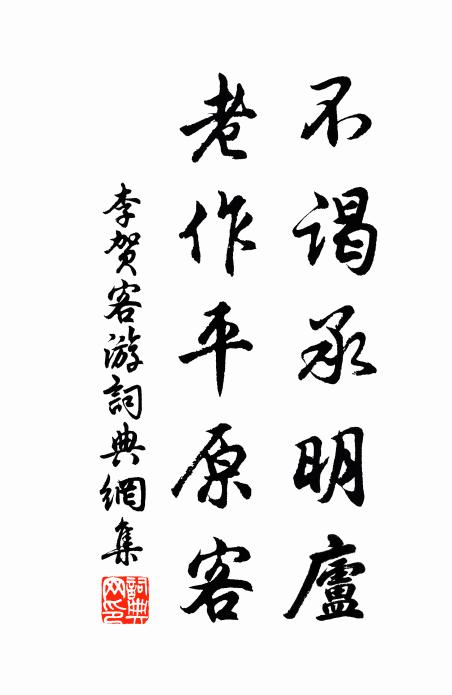 不谒承明廬
老作平原客
李贺客游詞典網集
詞典
网印